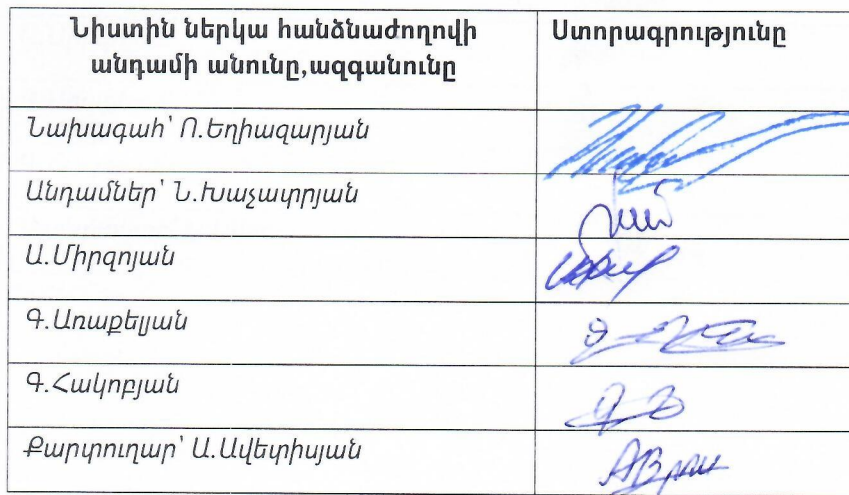 Նիստին ներկա հանձնաժողովի
անդամի անունը,ազգանունը
Ստորագրությունը
Նախագահ՝ Ո.Եղիազարյան
Անդամներ՝ Ն.Խաչատրյան
Ա.Միրզոյան
Գ.Առաքելյան
Գ.Հակոբյան
Քարտուղար՝ Ա.Ավետիսյան